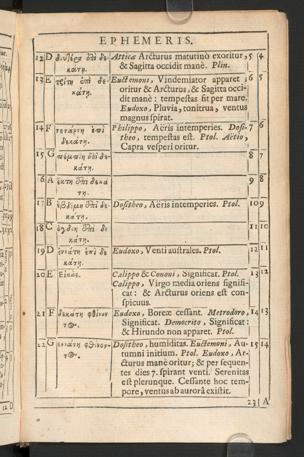 EPHEMERIS.
12 D δευτέρα ἐπὶ δε- Atticæ Arcturus matutinò exoritur, 5 4
κάτῃ. & Sagitta occidit manè. Plin.
13 E τρίτη ἐπὶ δε- Euctemoni, Vindemiator apparet 6 5
κάτῃ. oritur & Arcturus, & Sagitta occi-
dit manè: tempestas fit per mare.
Eudoxo, Pluvia, tonitrua, ventus
magnus spirat.
14 F τετάρτη ἐπὶ Philippo, Aëris intemperies. Dosi- 7 6
δεκάτῃ. theo, tempestas est. Ptol. Aëtio,
Capra vesperi oritur.
15 G πέμπτη ἐπὶ δε- 8 7
κάτῃ.
16 A ἕκτη ἐπὶ δεκά 9 8
τῃ.
17 B ἑβδόμη ἐπὶ δε- Dositheo, Aëris intemperies. Ptol. 10 9
κάτῃ.
18 C ὀγδόη ἐπὶ δε- 11 10
κάτῃ.
19 D ἐνάτη ἐπὶ δε- Eudoxo, Venti australes. Ptol. 12 11
κάτῃ.
20 E Εἰκάς. Calippo & Cononi, Significat. Ptol. 13 12
Calippo, Virgo media oriens signifi-
cat: & Arcturus oriens est con-
spicuus.
21 F δεκάτη φθίνον Eudoxo, Boreæ cessant. Metrodoro, 14 13
τος. Significat. Democrito, Significat:
& Hirundo non apparet. Ptol.
22 G ἐνάτη φθίνον- Dositheo, humiditas. Euctemoni, Au- 15 14
τος. tumni initium. Ptol. Eudoxo, Ar-
cturus manè oritur; & per sequen-
tes dies 7. spirant venti. Serenitas
est plerunque. Cessante hoc tem-
pore, ventus ab aurorâ existit.
23 A